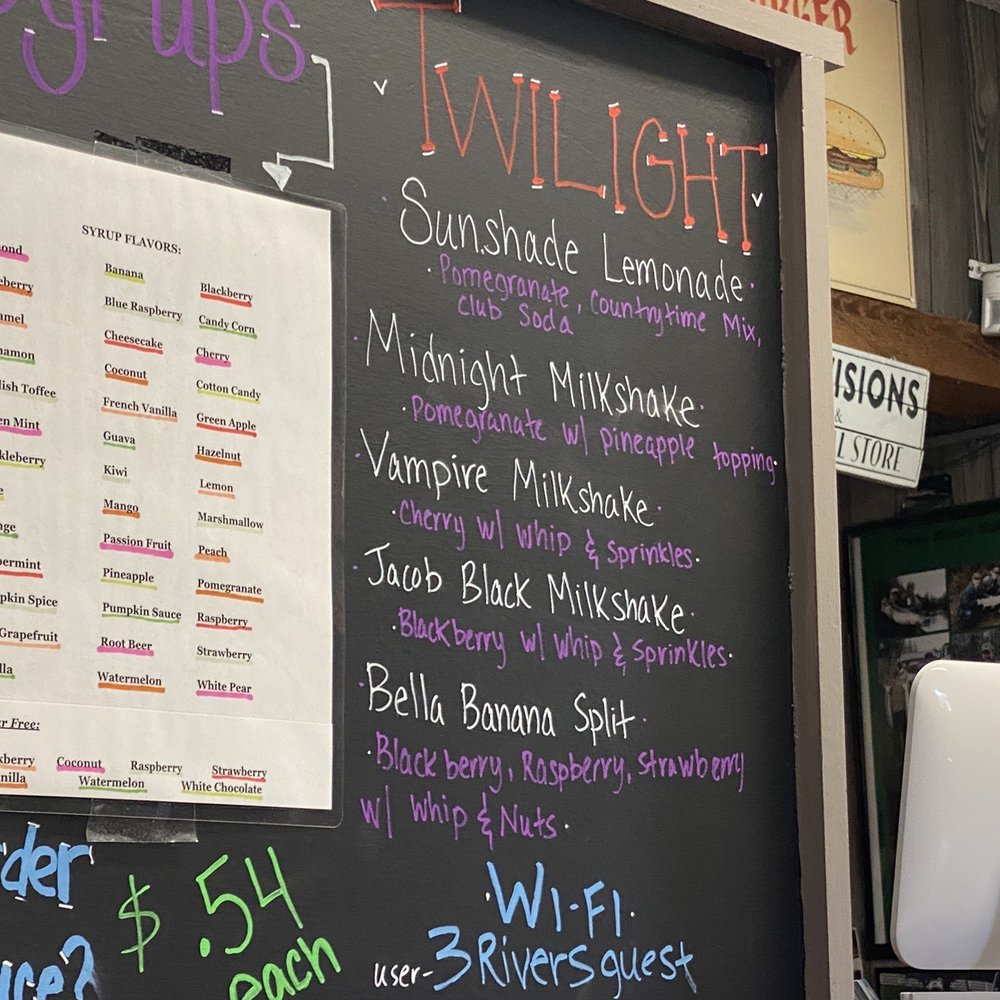 syrups
TWILIGHT
Sunshade Lemonade
Pomegranate, Countrytime Mix,
Club Soda
Midnight Milkshake
Pomegranate w/ pineapple topping
Vampire Milkshake
Cherry w/ whip & sprinkles
Jacob Black Milkshake
Blackberry w/ whip & sprinkles
Bella Banana Split
Blackberry, Raspberry, strawberry
w/ whip & Nuts
WI-FI
user- 3 Rivers guest
SYRUP FLAVORS:
Banana
Blue Raspberry
Cheesecake
Coconut
French Vanilla
Guava
Kiwi
Mango
Passion Fruit
Pineapple
Pumpkin Sauce
Root Beer
Watermelon
Blackberry
Candy Corn
Cherry
Cotton Candy
Green Apple
Hazelnut
Lemon
Marshmallow
Peach
Pomegranate
Raspberry
Strawberry
White Pear
Toffee
Mint
Spice
Grapefruit
Free:
Coconut Raspberry Strawberry
Watermelon White Chocolate
$ .54
each
STORE